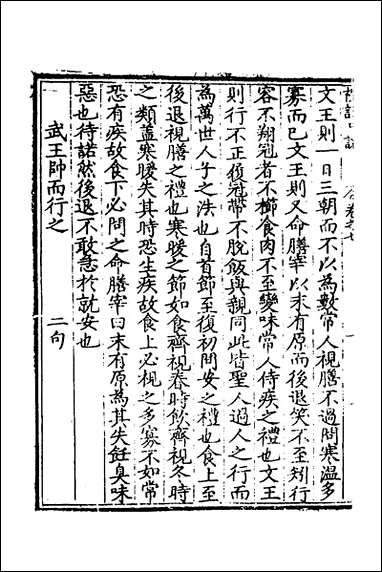 文王則一日三朝而不以為數常人視膳不過問寒温多
寡而已文王則又命膳宰以末有原而後退笑不至矧行
容不翔冠者不櫛食肉不至變味常人侍疾之禮也文王
則行不正復冠帶不脫飯與親同此皆聖人過人之行而
為萬世人子之法也自首節至復初問安之禮也食上至
後退視膳之禮也寒暖之節如食齊視春時飲齊視冬時
之類蓋寒暖失其時恐生疾故食上必視之多寡不如常
恐有疾故食下必問之命膳宰曰末有原為其失飪臭味
惡也待諾然後退不敢急於就安也
武王帥而行之　二句